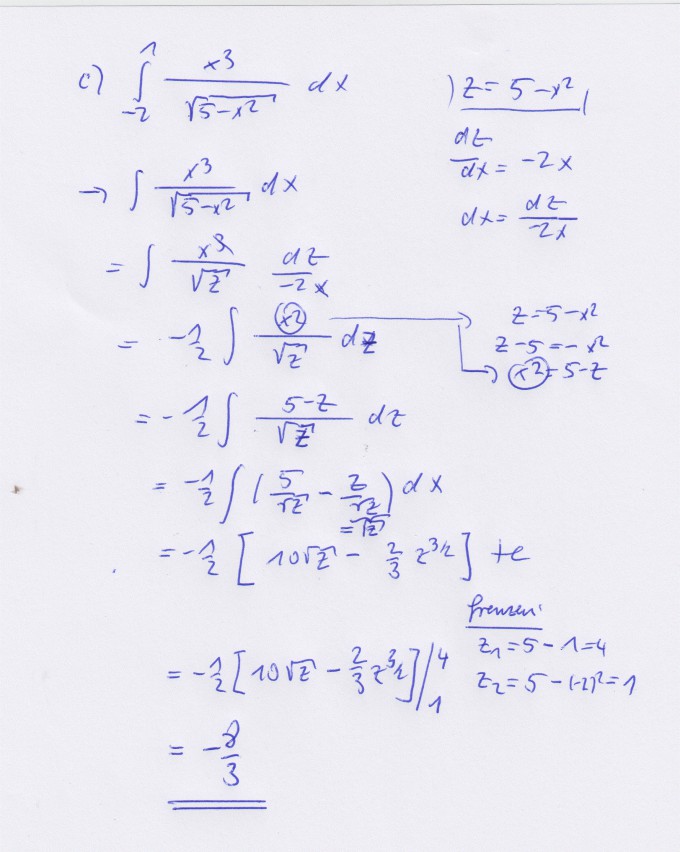 c) ∫_{-2}^{1} x³/√(5-x²) dx
) z = 5-x²
dz/dx = -2x
→ ∫ x³/√(5-x²) dx
dx = dz/(-2x)
= ∫ x³/√z dz/(-2x)
= -1/2 ∫ x²/√z dz
z = 5-x²
z-5 = -x²
x² = 5-z
= -1/2 ∫ (5-z)/√z dz
= -1/2 ∫ (5/√z - z/√z) dx
= √z
= -1/2 [10√z - 2/3 z^{3/2}] + c
Grenzen:
z₁ = 5-1 = 4
= -1/2 [10√z - 2/3 z^{3/2}] |_{1}^{4}
z₂ = 5-(-2)² = 1
= -8/3